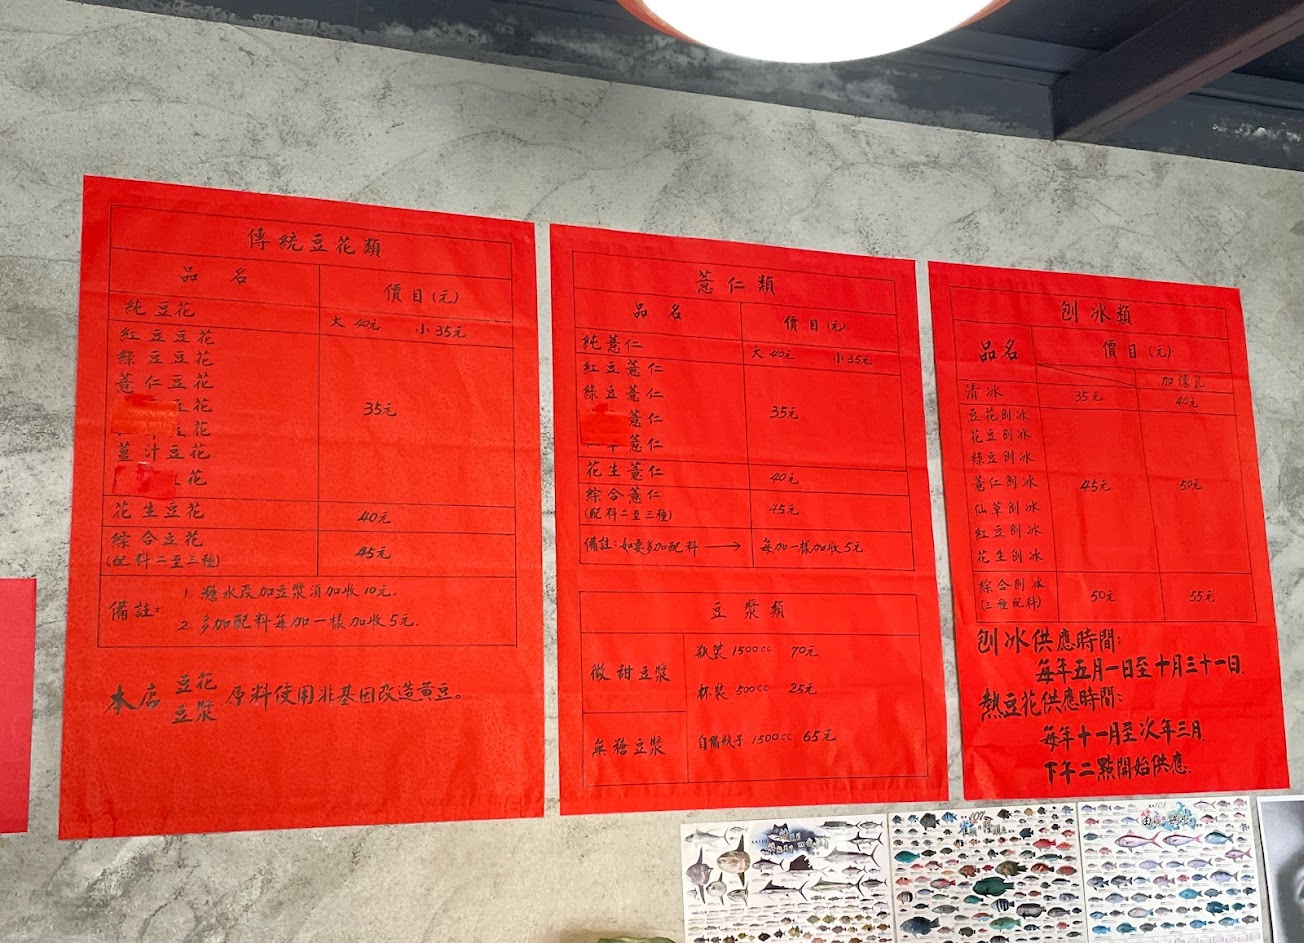 傳統豆花類
品名
價目(元)
純豆花
大 40元 小 35元
紅豆豆花
綠豆豆花
薏仁豆花
豆花
豆花
薑汁豆花
豆花
35元
花生豆花
40元
綜合豆花
(配料二至三種)
45元
備註:
1. 糖水改加豆漿須加收10元.
2. 多加配料每加一樣加收5元.
本店 豆花 豆漿 原料使用非基因改造黃豆。
薏仁類
品名
價目(元)
純薏仁
大 40元 小 35元
紅豆薏仁
綠豆薏仁
薏仁
薏仁
35元
花生薏仁
40元
綜合薏仁
(配料二至三種)
45元
備註:如要多加配料 → 每加一樣加收5元
豆漿類
微甜豆漿
無糖豆漿
瓶裝 1500cc 70元
杯裝 500cc 25元
自備瓶子 1500cc 65元
刨冰類
品名
價目(元)
加煉乳
清冰
35元
40元
豆花刨冰
花豆刨冰
綠豆刨冰
薏仁刨冰
仙草刨冰
紅豆刨冰
花生刨冰
45元
50元
綜合刨冰
(三種配料)
50元
55元
刨冰供應時間:
每年五月一日至十月三十一日.
熱豆花供應時間:
每年十一月至次年三月
下午二點開始供應.